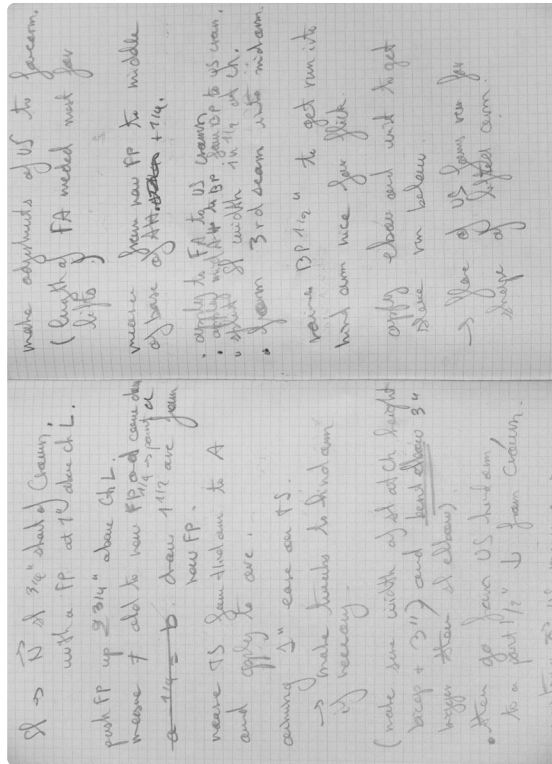 Sl → N sl 3/4" short of Crown,
with a FP at 1" above ch L.
push FP up 3/4" above Ch L.
measure 7 old to new FP and come down
1/4 → point a
a 1/4 = b. draw 1 1/2 arc from
new FP.
measure TS from hindarm to A
and apply to arc.
aiming 1" ease on TS.
→ make tweaks to hindarm
if necessary.
(make sure width of sl at ch height
bicep + 3") and bend elbow 3"
bigger than sl elbow)
. then go from US hindarm
to a point 1/2" ↓ from crown.
make adjustments of US to forearm.
(length of FA needed must for
lift)
measure from new FP to middle
of base of AH + 1/4.
. apply to FA to US crown.
. apply AH to BP from BP to US crown.
. split sl width in 1/2 at ch.
. form 3rd seam into midarm.
raise BP 1/2" to get run into
hind arm nice for flick.
apply elbow and wrist to get
share run below.
→ flare of US forms run for
shape of lifted arm.